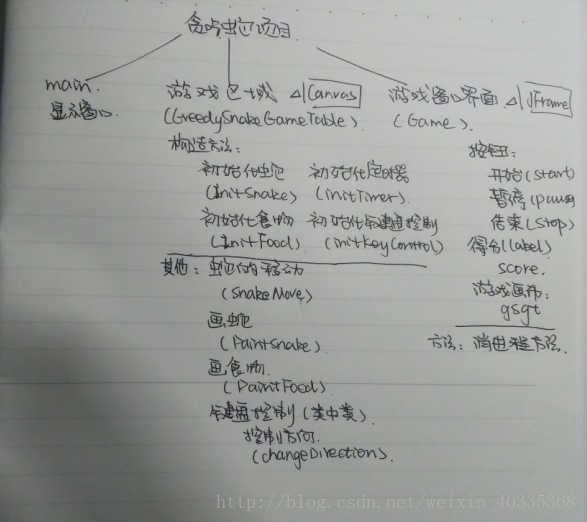 贪吃蛇项目
main.
显示窗口.
游戏区域 △ Canvas
(GreedySnakeGameTable).
构造方法:
初始化蛇 初始化定时器
(initSnake) (initTimer).
初始化食物 初始化键盘控制
(InitFood). (initKeyControl)
其他: 蛇的移动
(SnakeMove)
画蛇
(PaintSnake).
画食物.
(PaintFood)
键盘控制(类中类)
控制方向.
(changeDirection).
游戏窗口界面 △ JFrame
(Game).
按钮:
开始(start)
暂停(pause
结束(stop)
得分(label)
score.
游戏画布:
gsgt
方法:
http://blog.csdn.net/weixin_40335368